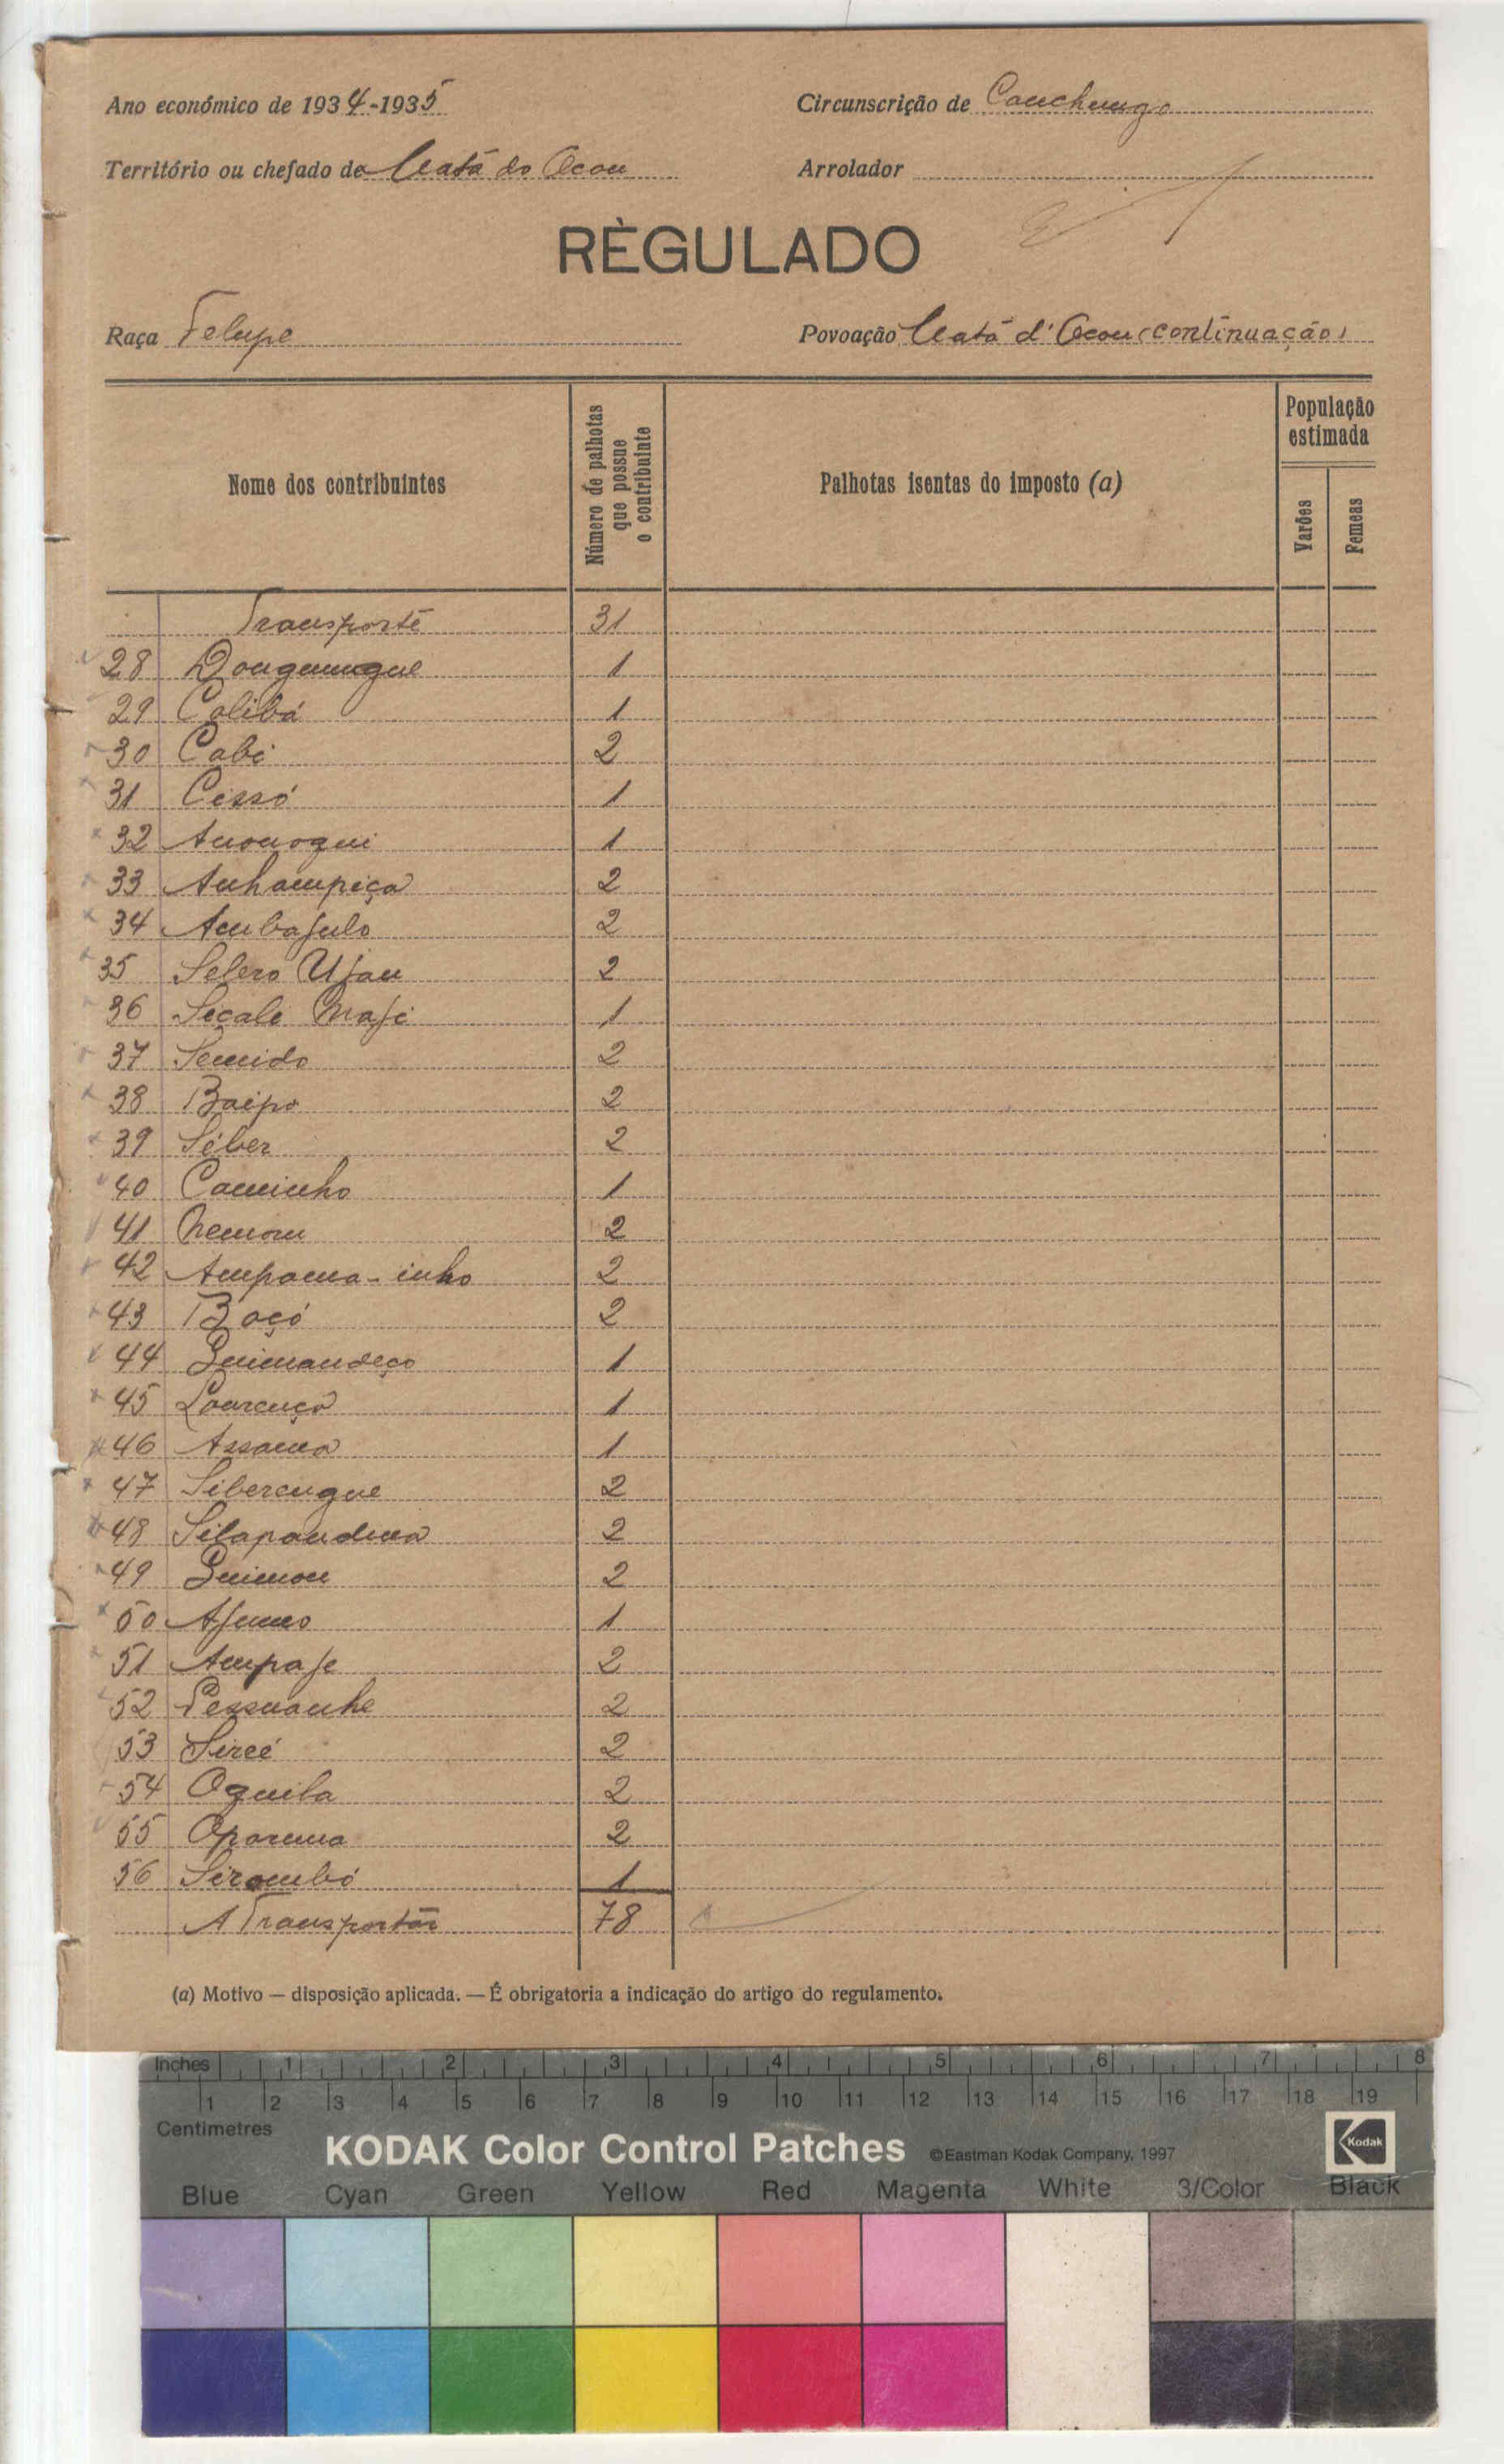 Ano económico de 1934-1935 Circunscrição de Canchungo
Território ou chefado de Catá do Ocou
Arrolador
RÈGULADO
Raça Felupe Povoação Catá d'Ocou (continuação)
Nome dos contribuintes
Número de palhotas que possue o contribuinte
Palhotas isentas do imposto (a)
População estimada
Varões
Femeas
Transporte 31
28 1
29 Colibá 1
30 Cabi 2
31 Cissó 1
32 1
33 Anhampiça 2
34 2
35 Selero Ujau 2
36 Seçali Maji 1
37 2
38 Baipo 2
39 Séber 2
40 Caminho 1
41 2
42 2
43 Boçó 2
44 Guimandeço 1
45 Lourenço 1
46 Assama 1
47 Siberengue 2
48 2
49 Guimou 2
50 1
51 Ampaje 2
52 2
53 Sireé 2
54 Oquila 2
55 2
56 Sirombó 1
A Transportar 78
(a) Motivo — disposição aplicada. — É obrigatoria a indicação do artigo do regulamento.
Inches 1 2 3 4 5 6 7 8
1 2 3 4 5 6 7 8 9 10 11 12 13 14 15 16 17 18 19
Centimetres
KODAK Color Control Patches ©Eastman Kodak Company, 1997 Kodak
Blue Cyan Green Yellow Red Magenta White 3/Color Black